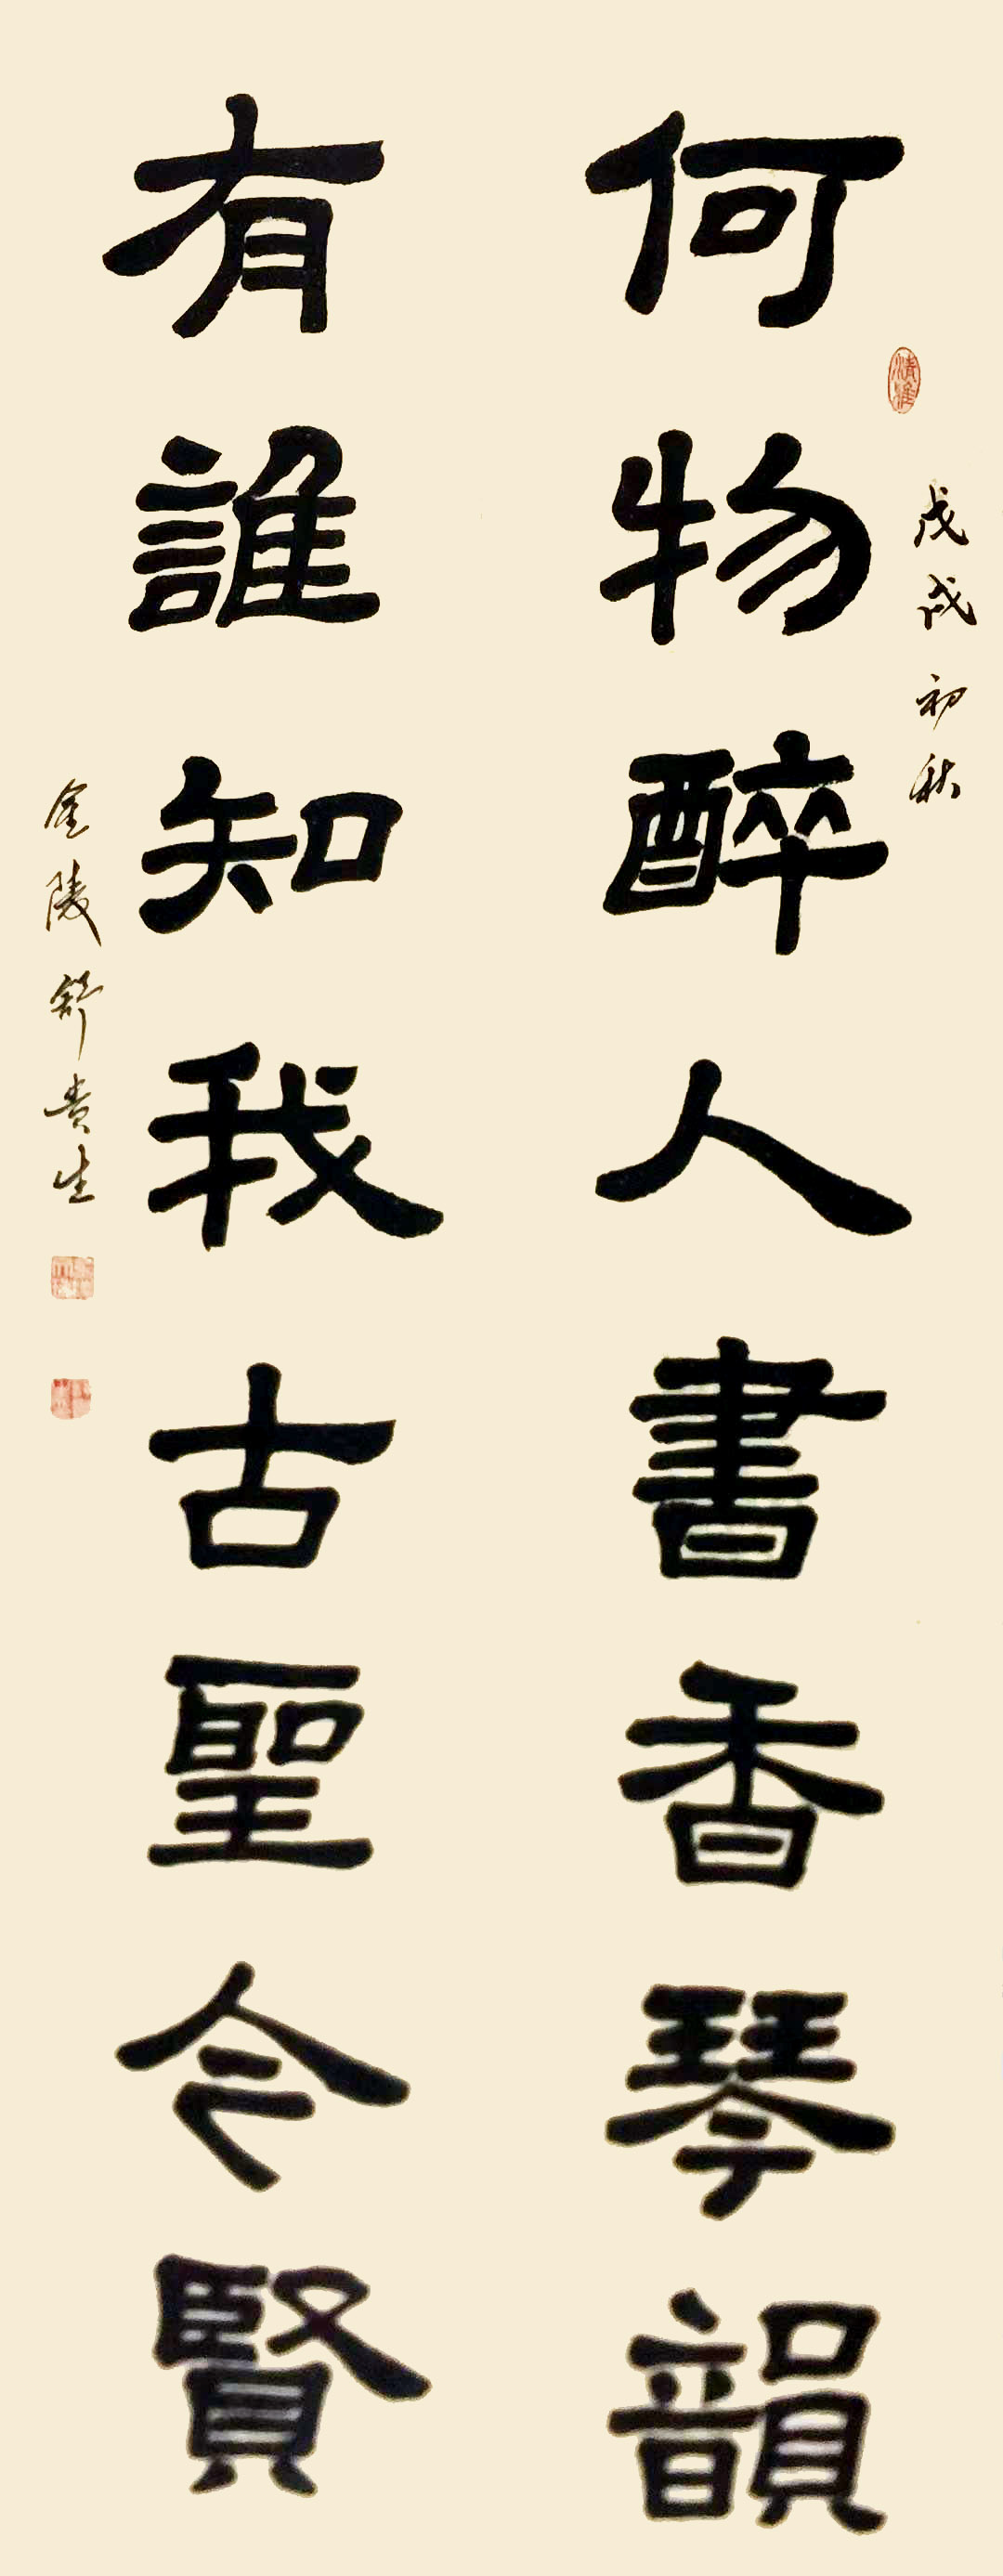 何物醉人書香琴韻
戊戌初秋
有誰知我古聖令賢
金陵舒貴生